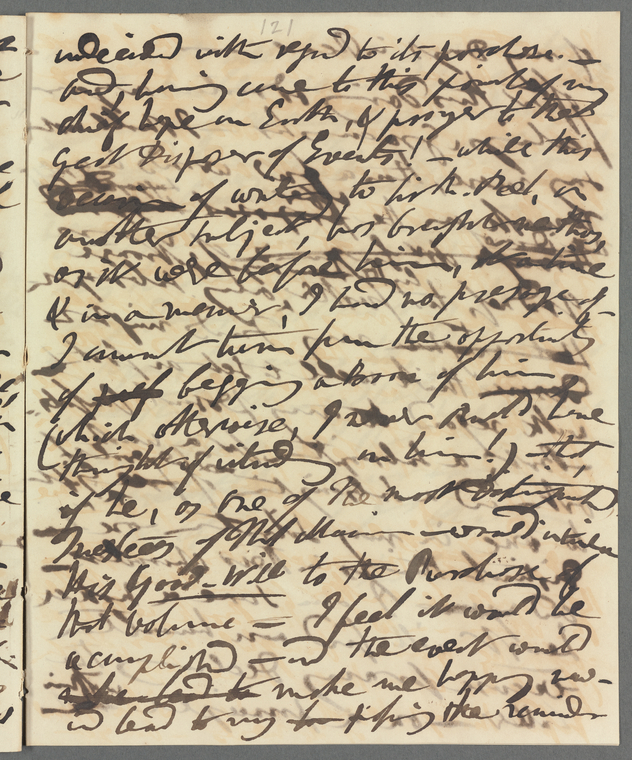 121
undecided with regard to its purchase. —
and having come to this point of my
chief hope on Earth, & prayer to the
great Disposer of Events! — while this
of writing to Sir R. Peel, on
another subject, has brought me thus,
as it were before him,
& in a manner, I had no presage of
I cannot turn from the opportunity
of begging a Boon of him
(which otherwise, I never should have
thought of intruding on him!) — that
if he, as one of the most distinguished
Trustees of that Museum — would
his Good-Will to the Purchase of
that volume — I feel it would be
accomplished — and the event would
make me happy
to my the remainder